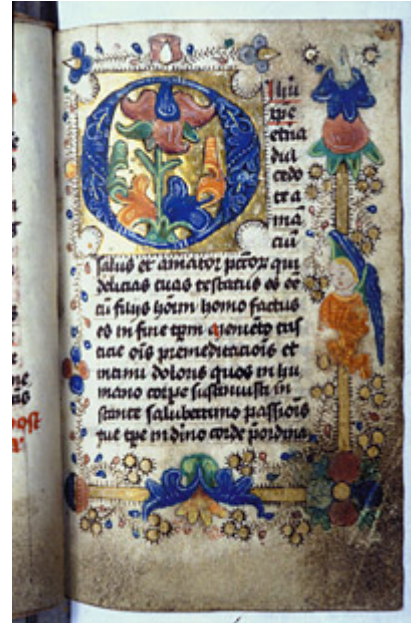 O Ihū
xpe
etna
dul
cedo
te a
mā
ciū
salus et amator pctoꝝ qui
delicias tuas testatus es ee
cū filijs hoīm homo factus
es in fine tpm memēto tris
ticie oīs premeditacioīs et
intimi doloris quos in hu
mano corpe sustinuisti in
stante saluberrimo passioīs
tue tpe in diuino corde pordina